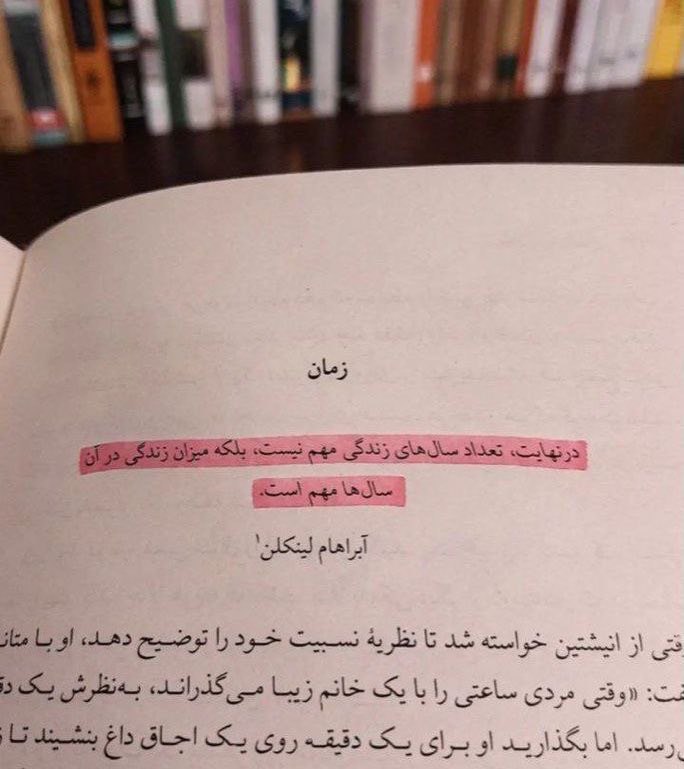 زمان
درنهایت، تعداد سال‌های زندگی مهم نیست، بلکه میزان زندگی در آن
سال‌ها مهم است.
آبراهام لینکلن¹
از انیشتین خواسته شد تا نظریهٔ نسبیت خود را توضیح دهد، او با
«وقتی مردی ساعتی را با یک خانم زیبا می‌گذراند، به‌نظرش یک
اما بگذارید او برای یک دقیقه روی یک اجاق داغ بنشیند تا